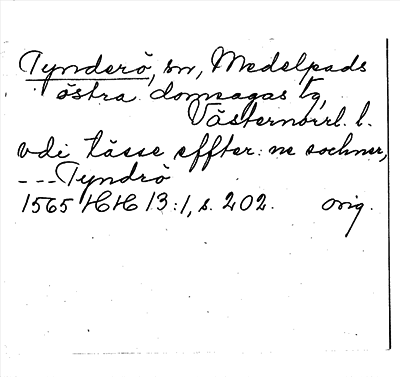 Tynderö, sn, Medelpads
östra domsagas tg,
Västernorrl. l.
vdi tässe effter: ne sochner,
--- Tyndrö
1565 HH 13:1, s. 202. orig.